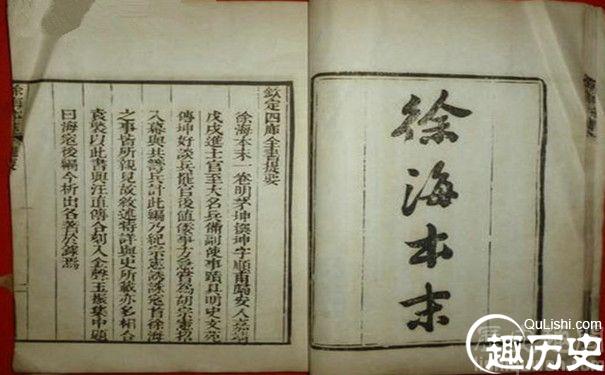 徐海本末
欽定四庫全書提要
徐海本末一卷明茅坤撰坤字順甫歸安人嘉靖
戊戌進士官至大名兵備副使事蹟具明史文苑
傳坤好談兵罷官後值倭事方急嘗爲胡宗憲招
入幕與共籌兵計此編乃紀宗憲誘誅寇首徐海
之事皆所親見故敘述特詳與史所載亦多相合
袁褧以此書與汪直傳合刻入金聲玉振集中題
曰海寇後編今析出各著於錄焉
QuLishi.com
趣历史